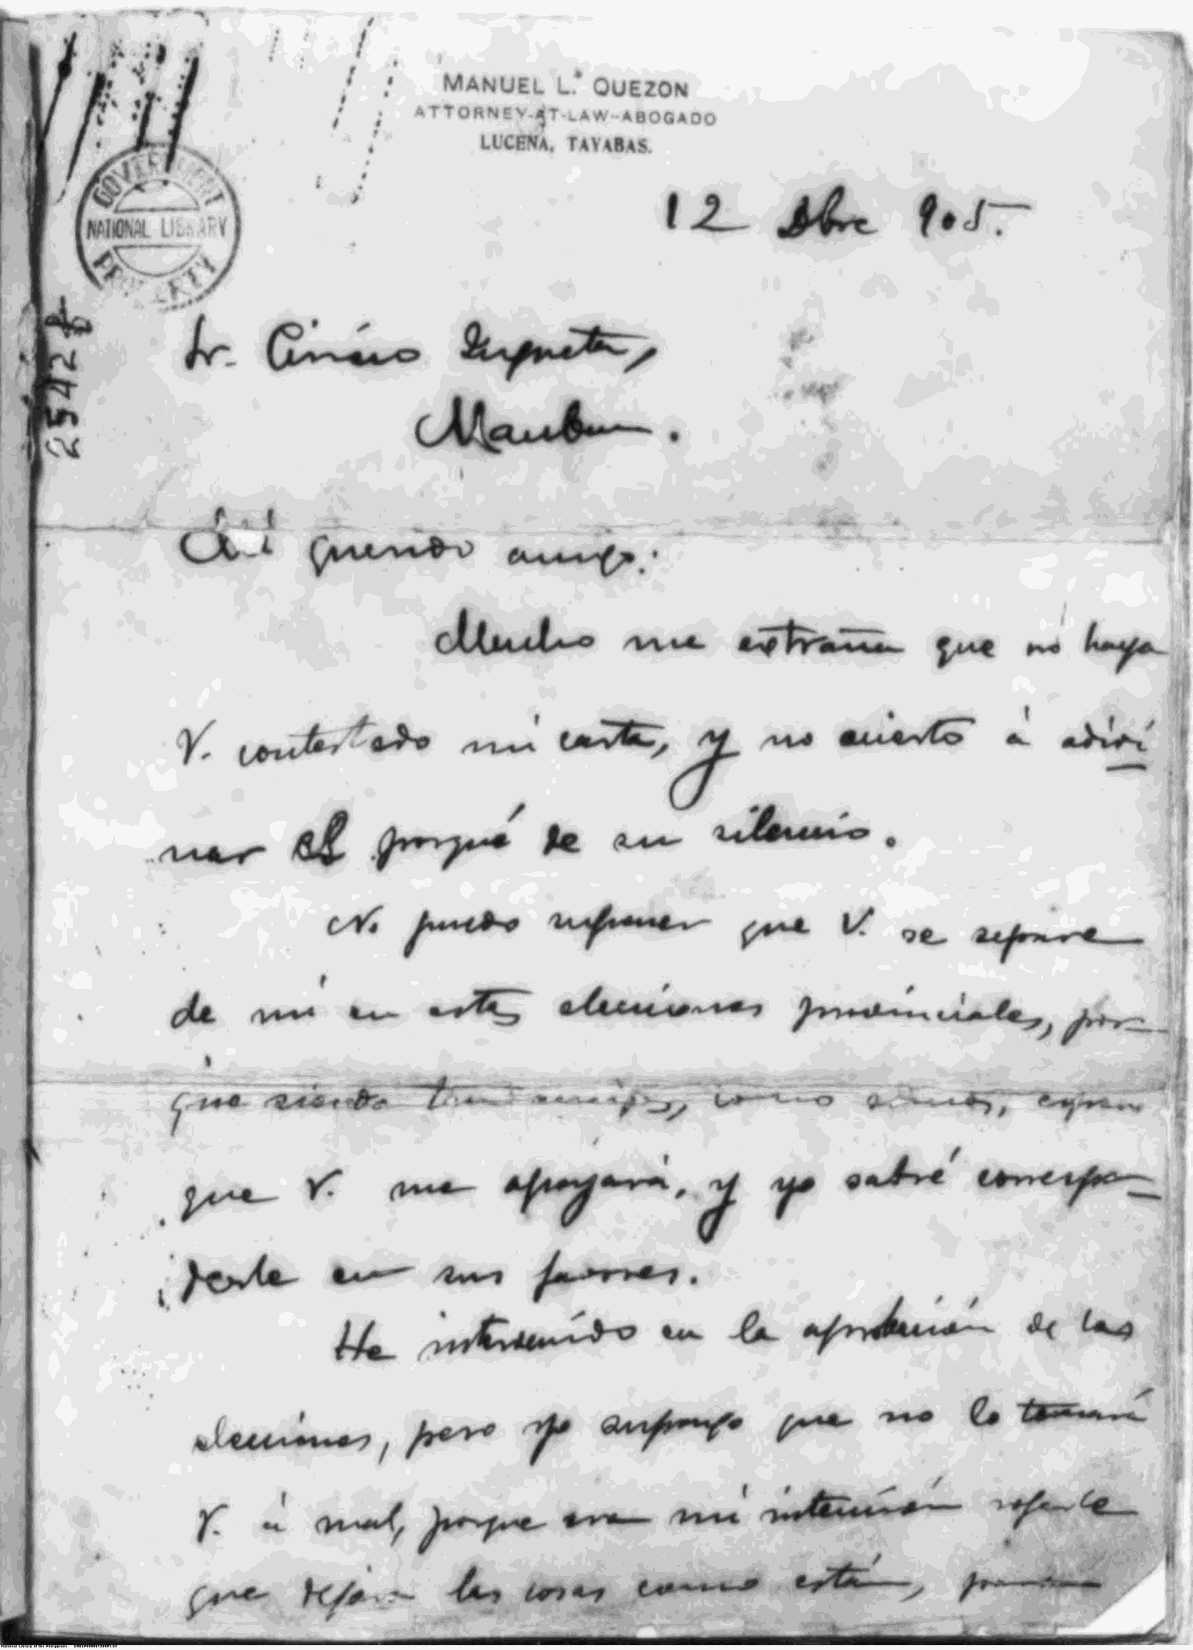 MANUEL L. QUEZON
ATTORNEY-AT-LAW-ABOGADO
LUCENA, TAYABAS.
12 Dbre 905.
GOVERNMENT
NATIONAL LIBRARY
PROPERTY
Sr. Ciriaco
Mauban.
Mi querido amigo:
Mucho me extraña que no haya
V. contestado mi carta, y no acierto á adivi
nar el porqué de su silencio.
No puedo suponer que V. se separe
de mi en estas elecciones provinciales, por-
que siendo tan amigos, como somos, espero
que V. me apoyará, y yo sabré correspon-
derle en sus favores.
He intervenido en la aprobación de las
elecciones, pero yo supongo que no lo tomará
V. á mal, porque era mi intención
que dejar las cosas como están,